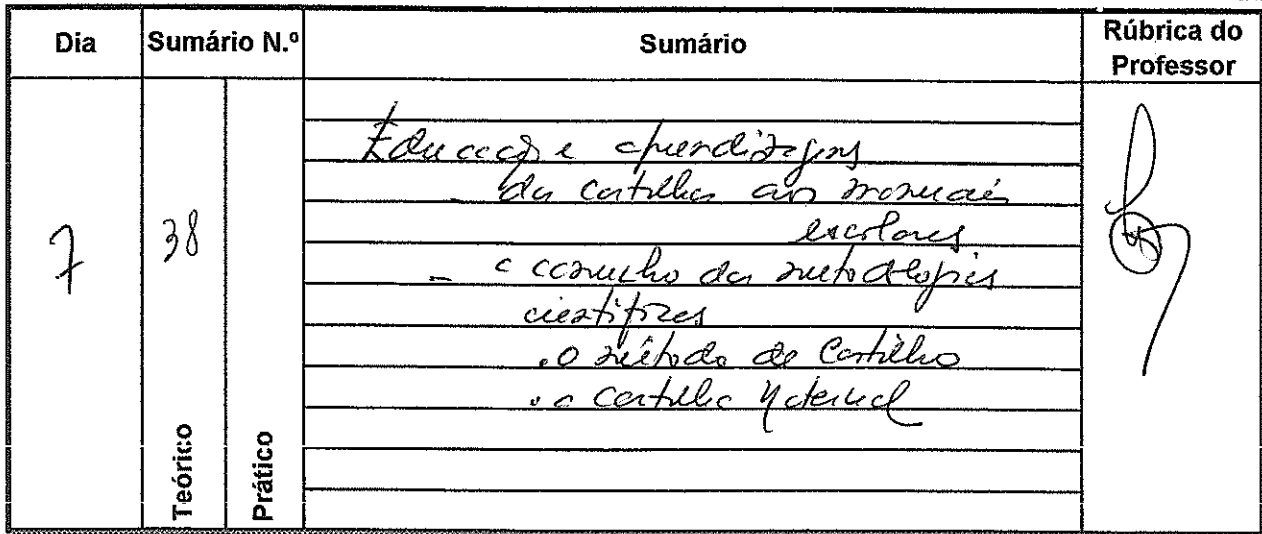 Dia Sumário N.º Sumário Rúbrica do Professor
7 38
Teórico Prático
Educação e aprendizagens
- da cartilha aos manuais
escolares
- a caminho das metodologias
científicas
. o método de Castilho
. a cartilha Maternal